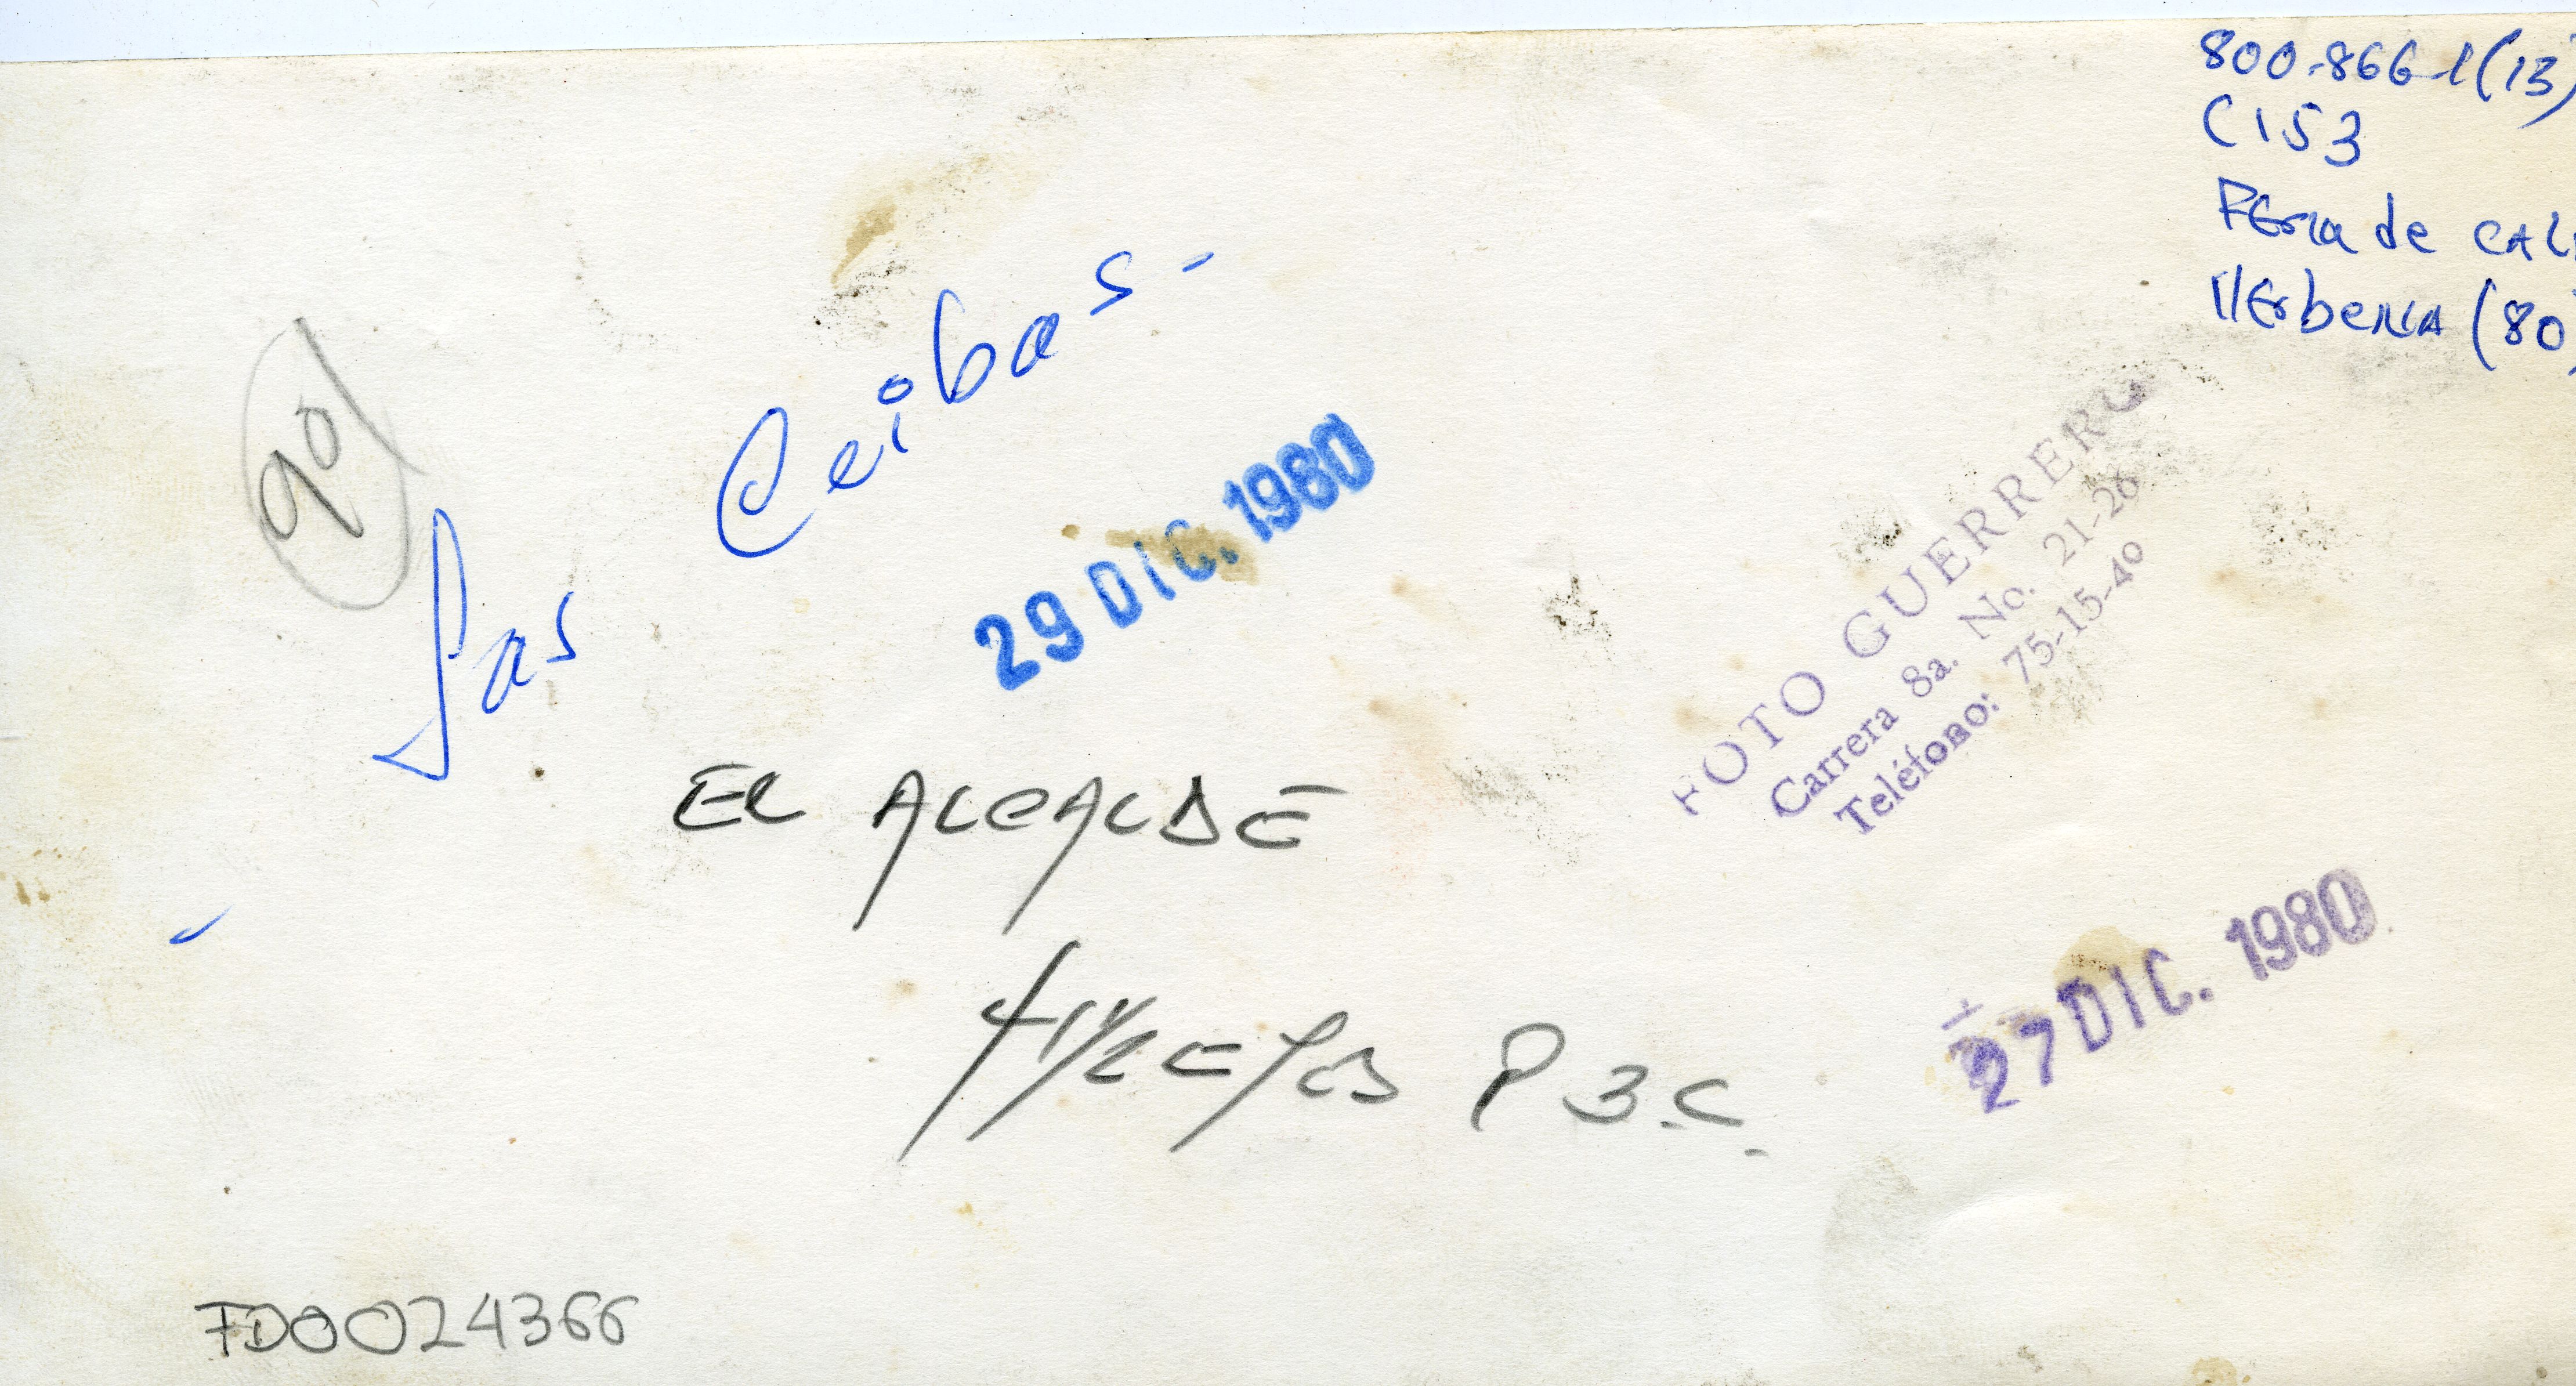 800-866-1(13)
C153
Feria de CALI
Verbena (80)
90
Las Ceibas-
29 DIC. 1980
FOTO GUERRERO
Carrera 8a. No. 21-26
Teléfono: 75-15-40
EL ALCALDE
P 3 C.
27 DIC. 1980
FD0024366